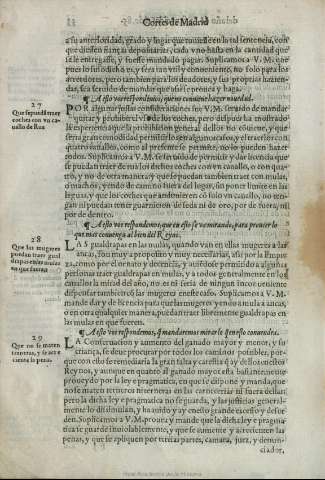 Cortes de Madrid
a su anterioridad, grado y lugar que tuuiesse en la tal sentencia, con
que diessen fianças depositarias, cada vno hasta en la cantidad que
se le entregasse, y fuesse mandado pagar. Suplicamos a V. M. que
pues lo susodicho es, y sera tan vtil y conueniente, no solo para los
acreedores, pero tambien para los deudores, y sus proprias haziendas,
sea seruido de mandar que assi se prouea y haga.
¶ A esto vos respondemos, que no conuiene hazer nouedad.
27
Que se puedā traer
coches con vn cauallo
POR algunas justas consideraciones fue V. M. seruido de mandar
quitar y prohibir el vso de los coches, pero despues ha mostrado
la experiencia que la prohibicion general dellos no conuiene, y que
seria gran comodidad permitirlo
quatro cauallos, como al presente se permite, no lo pueden hazer
todos. Suplicamos a V. M. sea seruido de permitir y dar licencia que
se puedan traer de rua los dichos coches con vn cauallo, o con quatro,
y no de otra manera: y que se puedan tambien traer con mulas,
o machos, yendo de camino fuera del lugar, sin poner limite en las
leguas, y que los coches que anduuieren cō solo vn cauallo, no tengan
ni puedan tener guarnicion de seda ni de oro, por de fuera, ni
por de dentro.
¶ A esto vos respondemos, que en esto se va mirando, para proueer lo
que mas conuenga al bien del Reyno.
28
Que las mugeres
puedan traer gualdrapas
LAS gualdrapas en las mulas, quando van en ellas mugeres a las
ancas, son muy a proposito y muy necessarias, assi por la limpieza,
como por el ornato y decencia, y auiendose permitido a algunas
personas traer gualdrapas en mulas, y a todos generalmente en los
cauallos la mitad del año, no es ni seria de ningun inconueniente
dispensar tambien cō las mugeres en este caso. Suplicamos a V. M.
mande dar y dè licencia para que las mugeres yendo en mula a ancas,
o en otra qualquier manera, puedan traer libremente gualdrapas en
las mulas en que fueren.
¶ A esto vos respondemos, q̄ mandaremos mirar lo q̄ en esto conuendra.
29
Que no se maten
terneras, y se acreciente
la pena.
LA Conseruacion y aumento del ganado mayor y menor, y su
criança, se deue procurar por todos los caminos possibles, porque
con ello se remediaria la gran falta y carestia q̄ ay dello en estos
Reynos, y aunque en quanto al ganado mayor esta bastantemente
proueydo por la ley e pragmatica, en que se dispone y manda, que
no se maten terneros ni terneras en las carnicerias ni fuera dellas:
pero la dicha ley e pragmatica no se guarda, y las justicias generalmente
lo dissimulan, y ha auido y ay en ello grande excesso y desorden.
Suplicamos a V. M. prouea y mande que la dicha ley e pragmatica
se guarde inuiolablemente, y que se aumenten y acrecienten las
penas, y que se apliquen por tercias partes, camara, juez, y denunciador,
ciador,